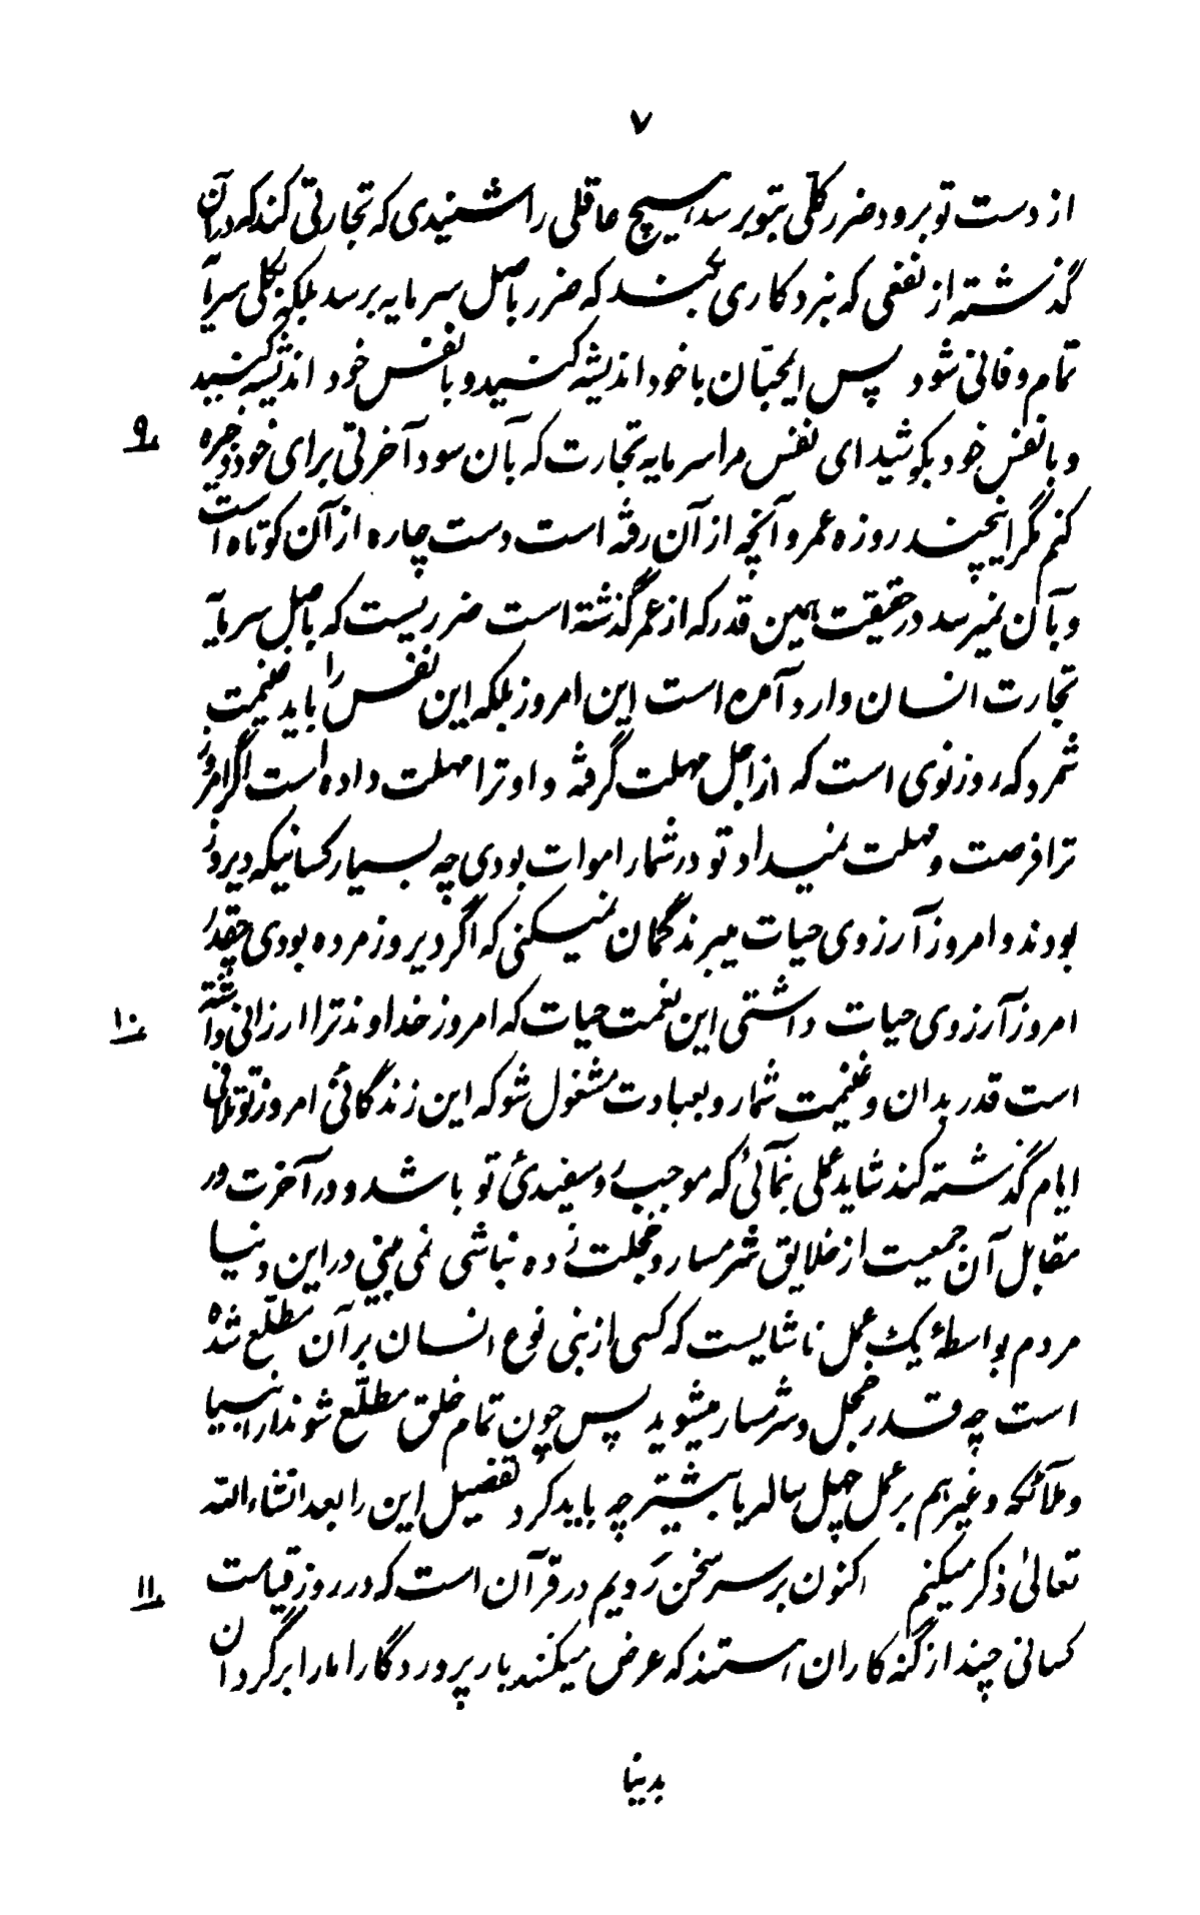 ۷
از دست تو برود ضرر کلّی بتو برسد هیچ عاقلی را شنیدی که تجارتی کند که در آن
گذشته از نفعی که نبرد کاری بکند که ضرر باصل سرمایه برسد بلکه بکلی سرمایه
تمام و فانی شود پس ایمحبّان با خود اندیشه کنید و با نفس خود اندیشه کنید
و با نفس خود بگوشید ای نفس مرا سرمایه تجارت که بآن سود آخرتی برای خود ذخیره
۹
کنم مگر اینچند روزه عمر و آنچه از آن رفته است دست چاره از آن کوتاه است
و بآن نمیرسد در حقیقت همین قدر که از عمر گذشته است ضرریست که باصل سرمایه
تجارت انسان وارد آمده است این امروز بلکه این نفس را باید غنیمت
شمرد که روز نوی است که از اجل مهلت گرفته و او ترا مهلت داده است اگر امروز
ترا فرصت و مهلت نمیداد تو در شمار اموات بودی چه بسیار کسانیکه دیروز
بودند و امروز آرزوی حیات میبرند گمان نمیکنی که اگر دیروز مرده بودی چقدر
امروز آرزوی حیات داشتی این نعمت حیات که امروز خداوند ترا ارزانی داشته
۱۰
است قدر بدان و غنیمت شمار و بعبادت مشغول شو که این زندگانی امروز تو تلافی
ایام گذشته کند شاید عملی بنمائی که موجب رو سفیدی تو باشد و در آخرت در
مقابل آن جمعیت از خلایق شرمسار و خجلت زده نباشی نمی بینی در این دنیا
مردم بواسطهٔ یک عمل ناشایست که کسی از بنی نوع انسان بر آن مطلّع شده
است چه قدر خجل و شرمسار میشوید پس چون تمام خلق مطلّع شوند از انبیا
و ملائکه و غیر هم بر عمل چهل ساله یا بیشتر چه باید کرد تفصیل این را بعد انشاءالله
تعالیٰ ذکر میکنم اکنون بر سر سخن رَویم در قرآن است که در روز قیامت
۱۱
کسانی چند از گنه کاران هستند که عرض میکنند بار پروردگارا ما را برگردان
بدنیا